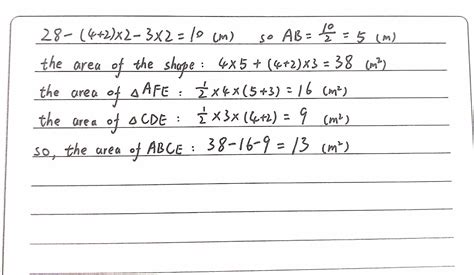 28-(4+2)×2-3×2=10 (m) so AB=10/2=5 (m)
the area of the shape: 4×5+(4+2)×3=38 (m²)
the area of △AFE: 1/2×4×(5+3)=16 (m²)
the area of △CDE: 1/2×3×(4+2)=9 (m²)
so, the area of ABCE: 38-16-9=13 (m²)